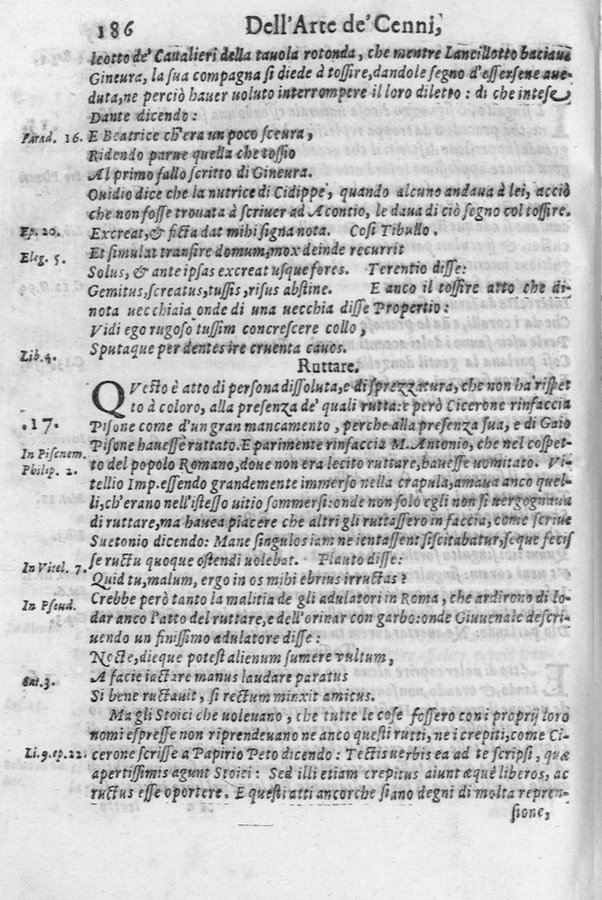 186 Dell'Arte de' Cenni,
leotto de' Caualieri della tauola rotonda, che mentre Lancillotto baciaua
Gineura, la sua compagna si diede à tossire, dandole segno d'essersene aue-
duta, ne perciò hauer uoluto interrompere il loro diletto: di che intese
Dante dicendo:
Parad. 16. E Beatrice ch'era un poco sceura,
Ridendo parue quella che tossio
Al primo fallo scritto di Gineura.
Ouidio dice che la nutrice di Cidippe, quando alcuno andaua à lei, acciò
che non fosse trouata à scriuer ad Acontio, le daua di ciò segno col tossire.
Ep. 20. Excreat, & ficta dat mihi signa nota. Cosi Tibullo.
Eleg. 5. Et simulat transire domum, mox deinde recurrit
Solus, & ante ipsas excreat usque fores. Terentio disse:
Gemitus, screatus, tussis, risus abstine. E anco il tossire atto che di-
nota uecchiaia, onde di una uecchia disse Propertio:
Vidi ego rugoso tussim concrescere collo,
Lib. 4. Sputaque per dentes ire cruenta cauos.
Ruttare.
.17. QVesto è atto di persona dissoluta, e di sprezzatura, che non ha rispet
to à coloro, alla presenza de' quali rutta: e però Cicerone rinfaccia
Pisone come d'un gran mancamento, perche alla presenza sua, e di Gaio
In Pisonem. Pisone hauesse ruttato. E parimente rinfaccia M. Antonio, che nel cospet-
Philip. 2. to del popolo Romano, doue non era lecito ruttare, hauesse uomitato. Vi-
tellio Imp. essendo grandemente immerso nella crapula, amaua anco quel-
li, ch'erano nell'istesso uitio sommersi: onde non solo egli non si uergognaua
di ruttare, ma hauea piacere che altri gli ruttassero in faccia, come scriue
Suetonio dicendo: Mane singulos iam ne ientassent siscitabatur, seque fecis
In Vitel. 7. se ructu quoque ostendi uolebat. Plauto disse:
Quid tu, malum, ergo in os mihi ebrius irructas?
In Pseud. Crebbe però tanto la malitia de gli adulatori in Roma, che ardirono di lo-
dar anco l'atto del ruttare, e dell'orinar con garbo: onde Giuuenale descri-
uendo un finissimo adulatore disse:
Nocte, dieque potest alienum sumere vultum,
Sat. 3. A facie iactare manus laudare paratus
Si bene ructauit, si rectum minxit amicus.
Ma gli Stoici che uoleuano, che tutte le cose fossero con i proprij loro
nomi espresse non riprendeuano ne anco questi rutti, ne i crepiti, come Ci-
Li. 9. ep. 22. cerone scrisse a Papirio Peto dicendo: Tectis uerbis ea ad te scripsi, quæ
apertissimis agunt Stoici: Sed illi etiam crepitus aiunt æquè liberos, ac
ructus esse oportere. E questi atti ancorche siano degni di molta repren-
sione,